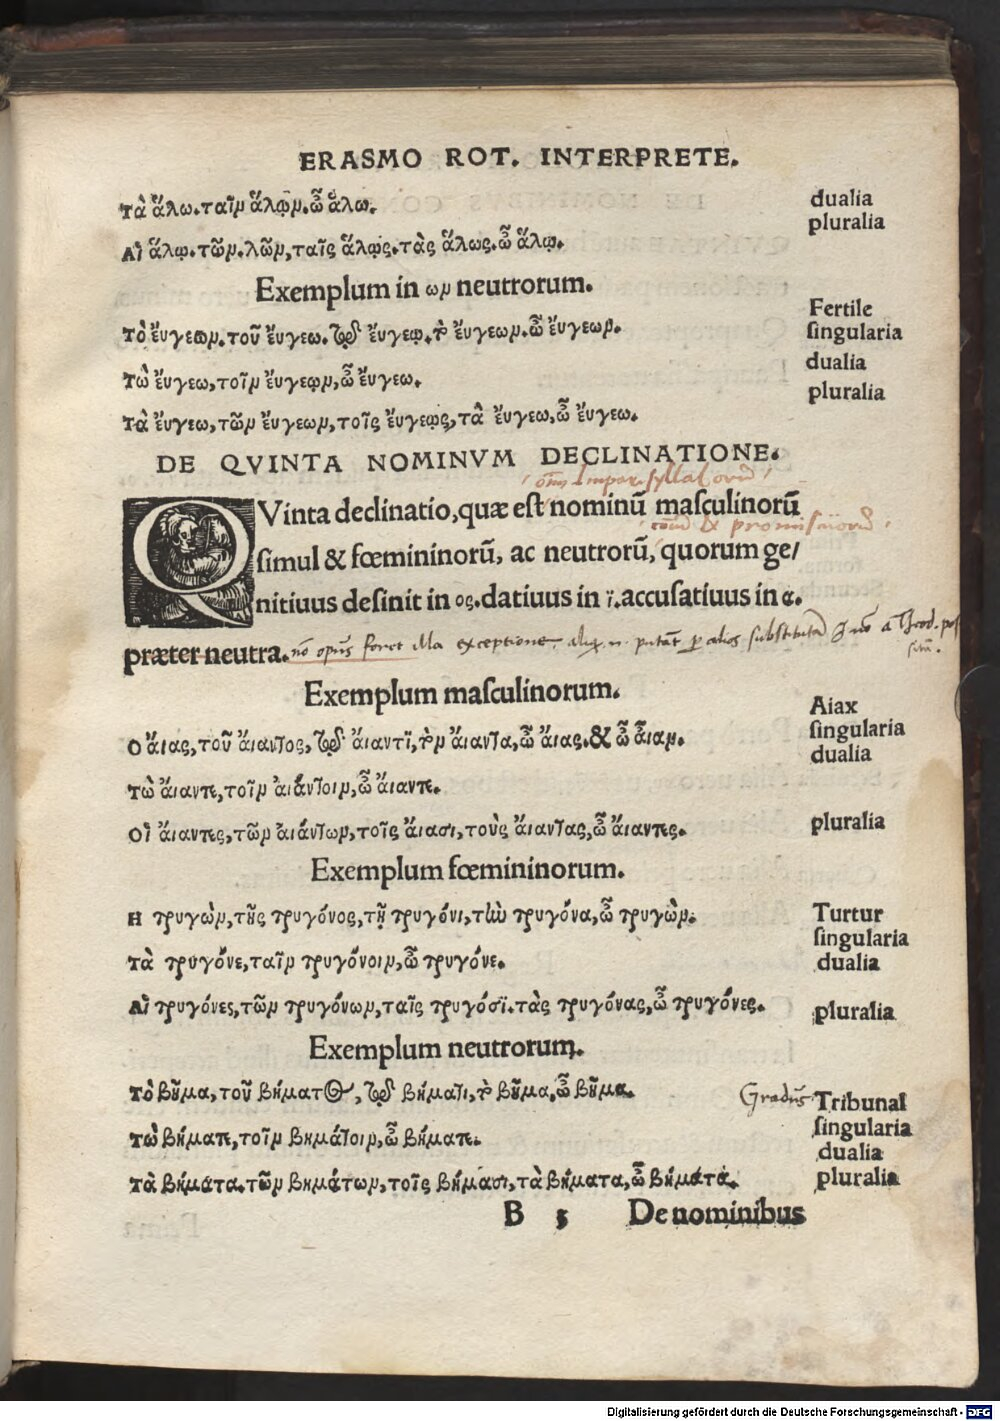 ERASMO ROT. INTERPRETE.
τὰ ἅλω. ταῖν ἅλῳν. ὦ ἅλω. dualia
Αἱ ἅλῳ. τῶν. λῶν, ταῖς ἅλῳς. τὰς ἅλως. ὦ ἅλῳ. pluralia
Exemplum in ων neutrorum.
Τὸ ἔυγεων. τοῦ ἔυγεω. τῷ ἔυγεῳ. τὸ ἔυγεων. ὦ ἔυγεων. Fertile singularia
Τὼ ἔυγεω, τοῖν ἔυγεῳν, ὦ ἔυγεω. dualia
Τὰ ἔυγεω, τῶν ἔυγεων, τοῖς ἔυγεῳς, τὰ ἔυγεω, ὦ ἔυγεω. pluralia
DE QVINTA NOMINVM DECLINATIONE.
QVinta declinatio, quæ est nominū masculinorū
simul & fœmininorū, ac neutrorū, quorum ge/
nitiuus desinit in ος. datiuus in ϊ. accusatiuus in α.
præter neutra. nō opus foret illa exceptione
Exemplum masculinorum.
Ο ἄιας, τοῦ ἄιαντος, τῷ ἄιαντϊ, τὸν ἄιαντα, ὦ ἄιας. & ὦ ἆιαν. Aiax singularia
Τὼ ἄιαντε, τοῖν ἀιάντοιν, ὦ ἄιαντε. dualia
Οἱ ἄιαντες, τῶν ἀιάντων, τοῖς ἄιασι, τοὺς ἄιαντας, ὦ ἄιαντες. pluralia
Exemplum fœmininorum.
Η τρυγὼν, τῆς τρυγόνος, τῇ τρυγόνι, τὴν τρυγόνα, ὦ τρυγὼν. Turtur singularia
Τὰ τρυγόνε, ταῖν τρυγόνοιν, ὦ τρυγόνε. dualia
Αἱ τρυγόνες, τῶν τρυγόνων, ταῖς τρυγόσϊ. τὰς τρυγόνας, ὦ τρυγόνες. pluralia
Exemplum neutrorum.
Τὸ βῆμα, τοῦ βήματος, τῷ βήματι, τὸ βῆμα, ὦ βῆμα. Gradus Tribunal singularia
Τὼ βήματε, τοῖν βημάτοιν, ὦ βήματε. dualia
Τὰ βήματα. τῶν βημάτων, τοῖς βήμασι, τὰ βήματα, ὦ βήματα. pluralia
B 3 De nominibus
Digitalisierung gefördert durch die Deutsche Forschungsgemeinschaft - DFG